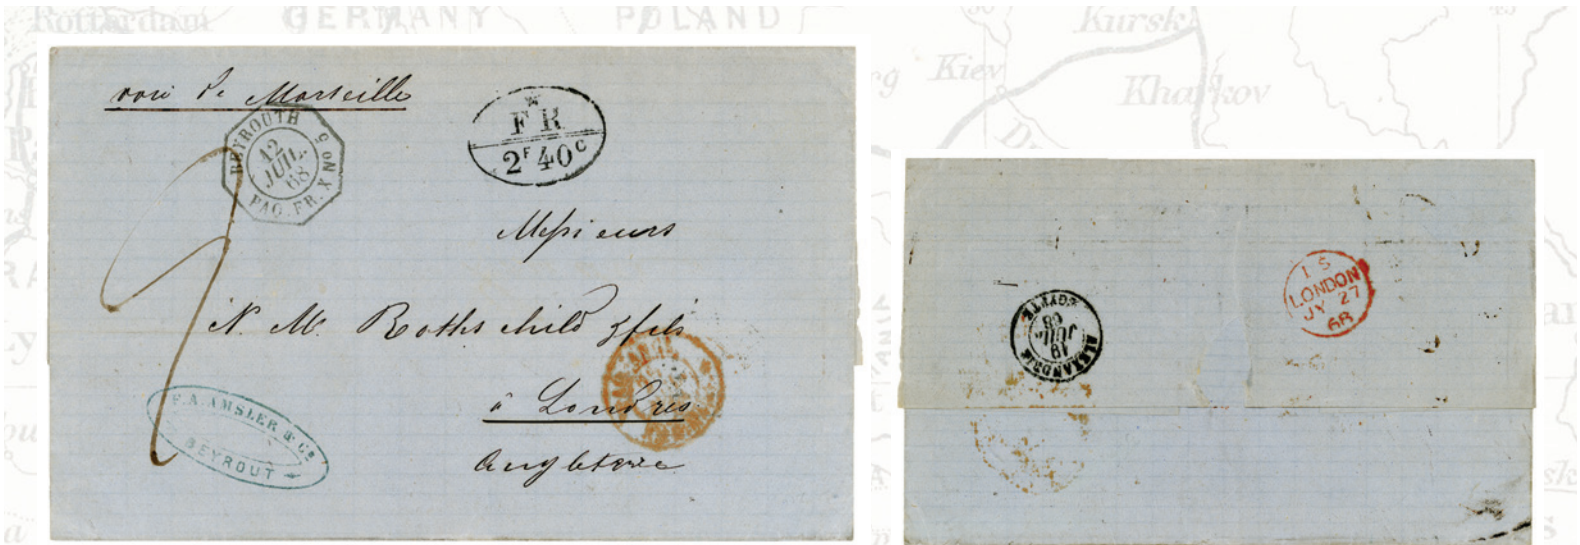 Rotterdam GERMANY POLAND
Kursk
Kiev
Kharkov
voie de Marseille
BEYROUTH
12
JUIL.
68
PAQ. FR. X No 5
F R
2F 40c
Messieurs
N. M. Rothschild & fils
à Londres
Angleterre
F. A. AMSLER & Co
BEYROUT
ALEXANDRIE
19
JUIL.
68
EGYPTE
1 S
LONDON
JY 27
68